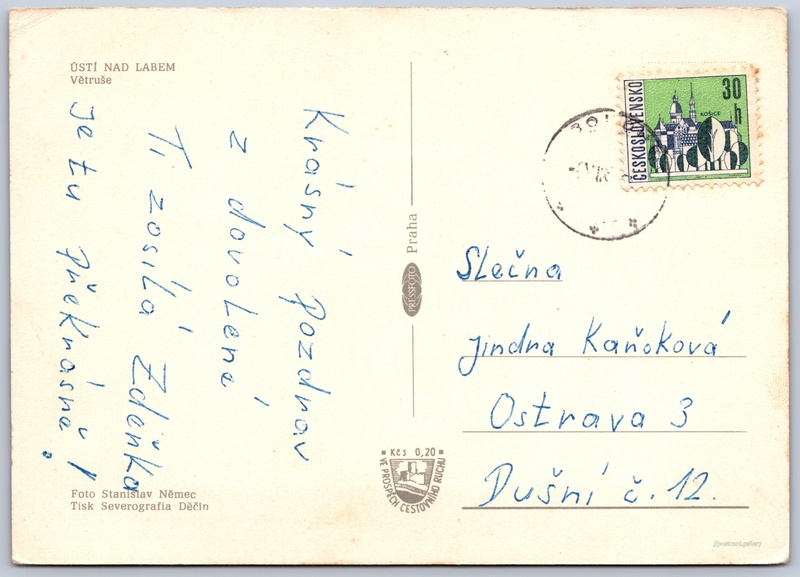 ÚSTÍ NAD LABEM
Větruše
Krásný pozdrav
z dovolené
Ti zosílá Zdeňka
je tu překrásně!
Foto Stanislav Němec
Tisk Severografia Děčín
PRESSFOTO Praha
Kčs 0,20
VE PROSPĚCH CESTOVNÍHO RUCHU
ČESKOSLOVENSKO
30 h
KOŠICE
Slečna
Jindra Kaňoková
Ostrava 3
Dušní č. 12.